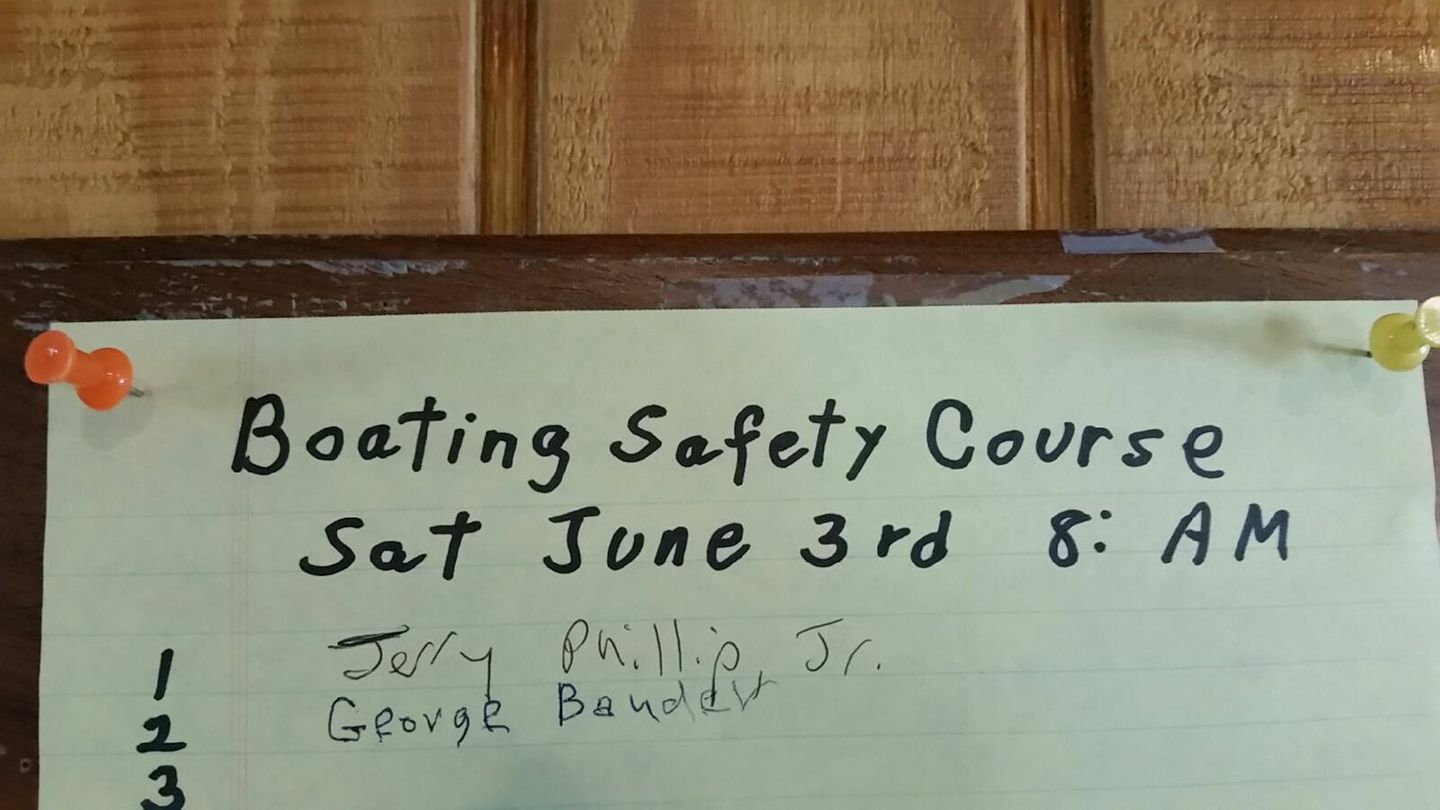 Boating Safety Course
Sat June 3rd 8: AM
1 Jerry Phillip Jr.
2 George
3